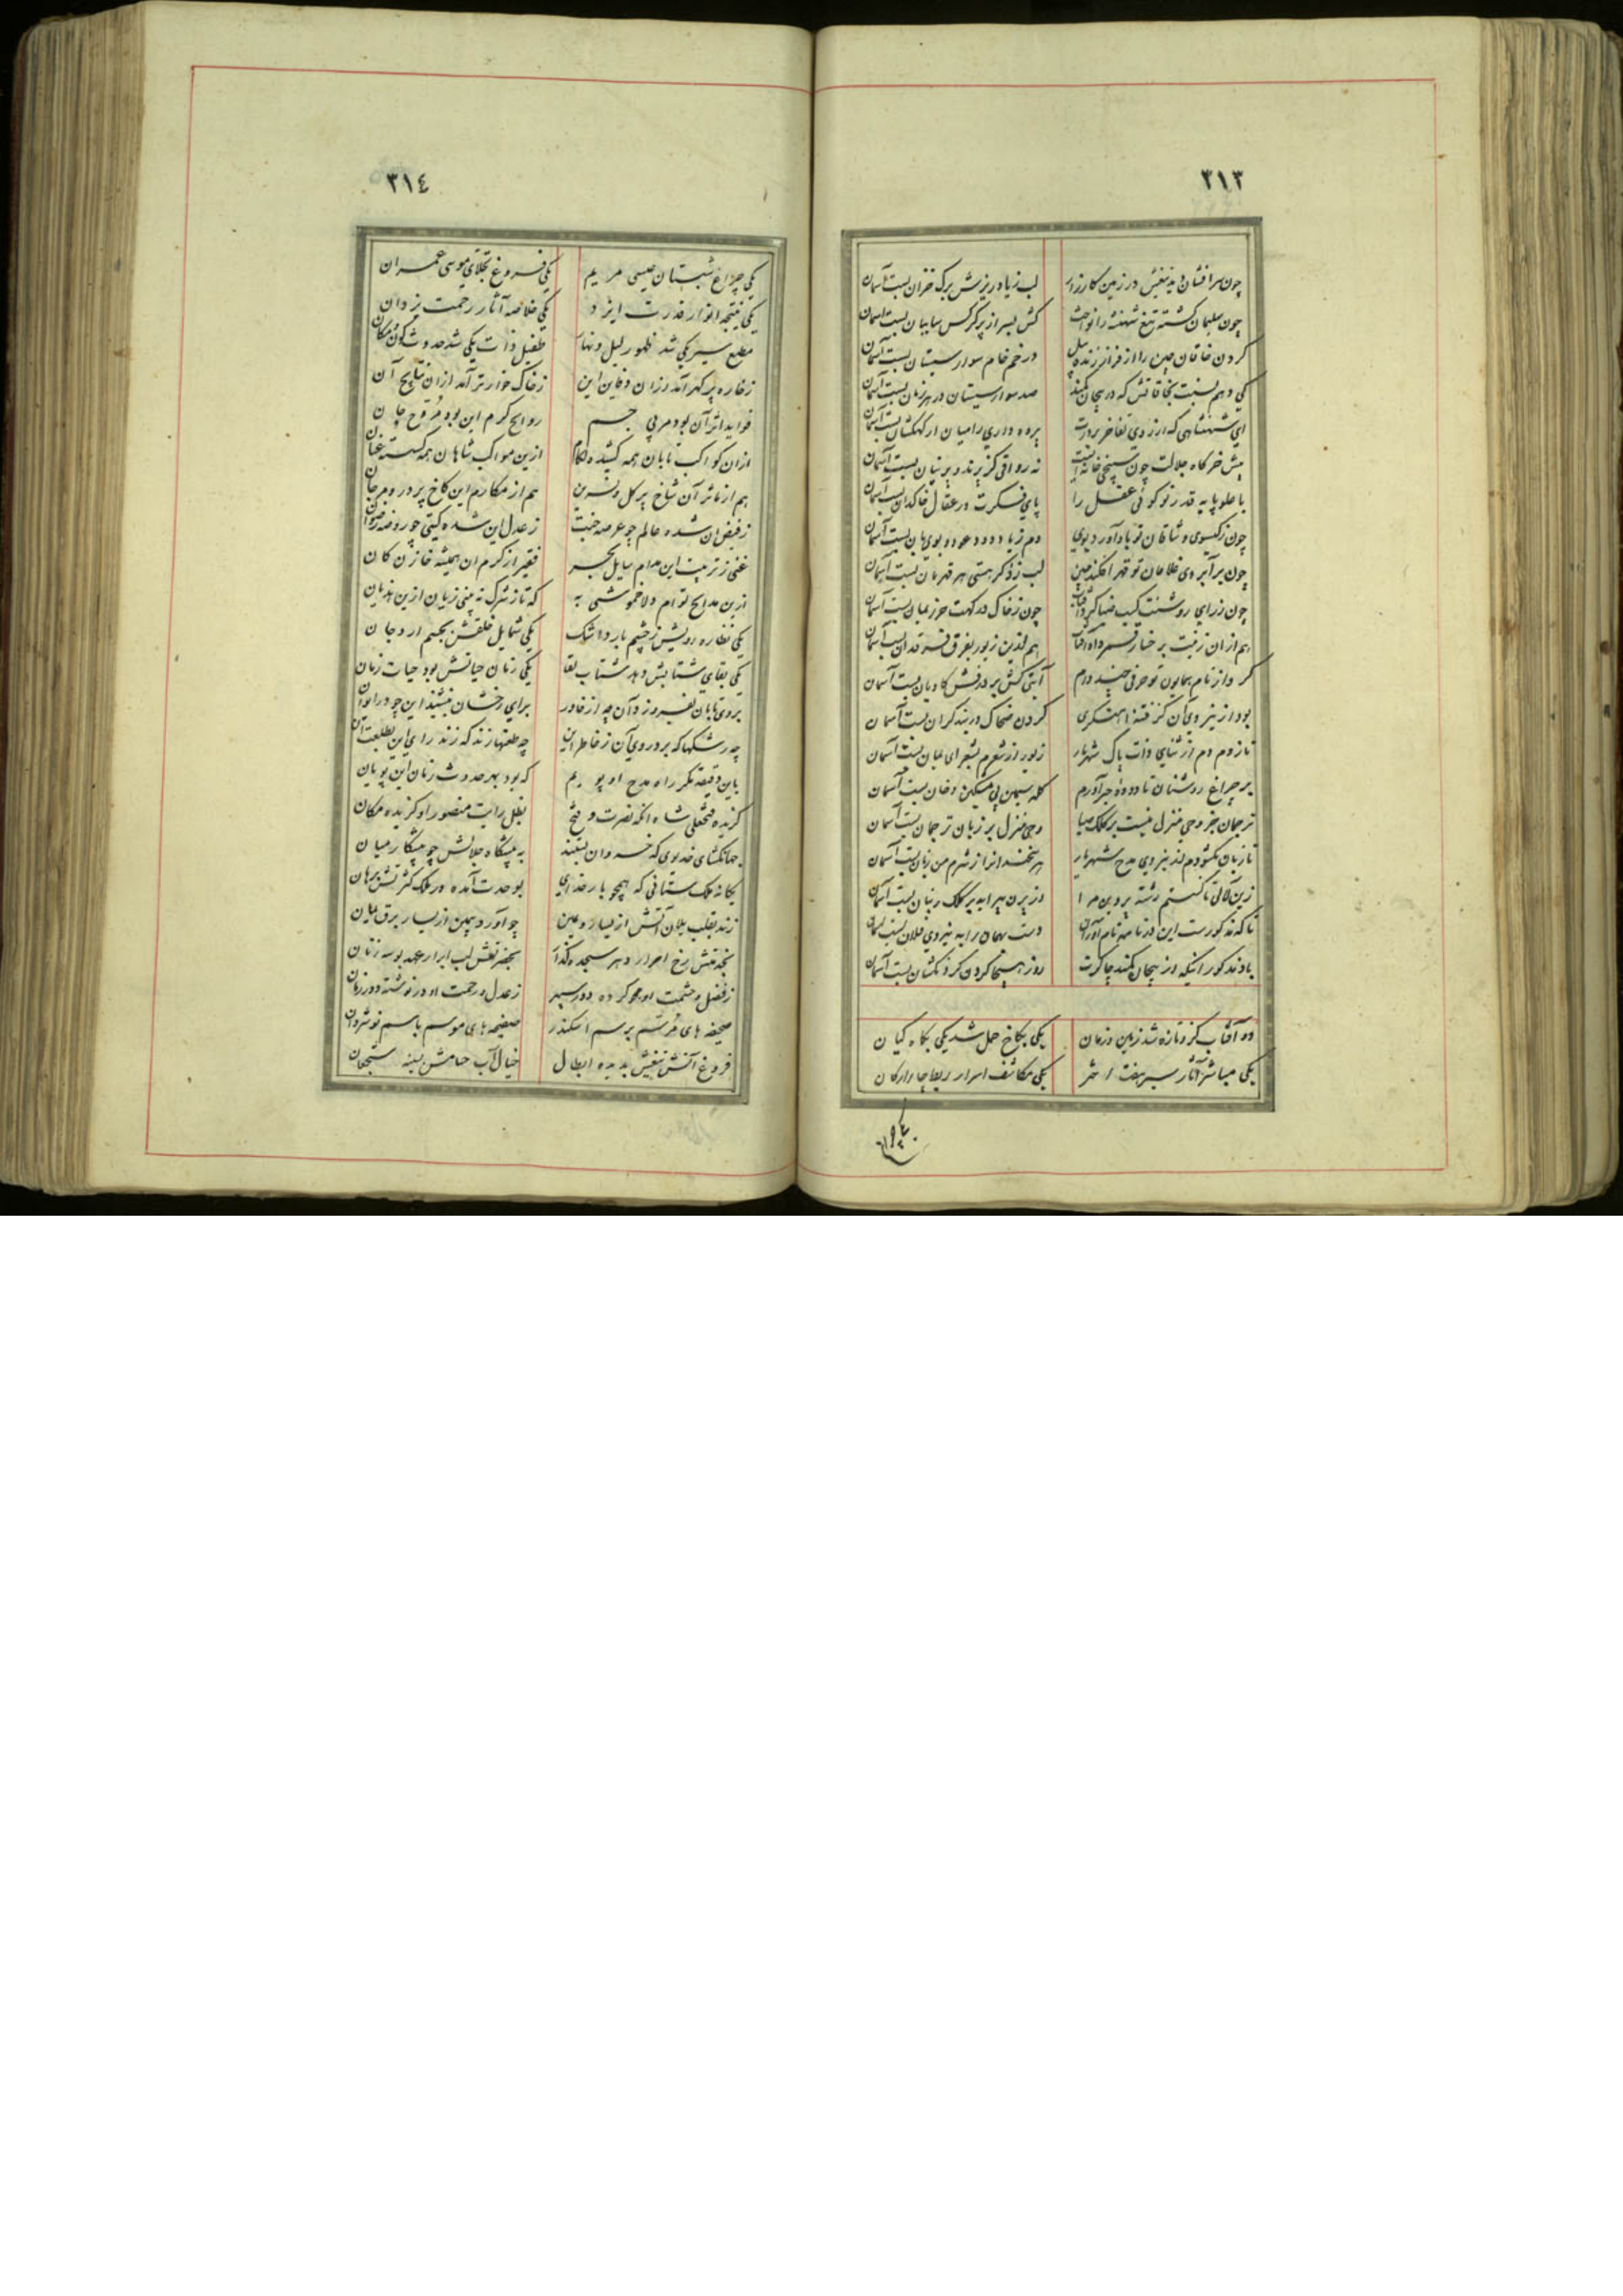 ٣١٣
چون سرافشان دید تیغش در زمین کارزار لب زیاد ریزش برک خزان بست آسمان
چون سلیمان کشته تیغ شهنشه را نواخت کش بسر از پر کرکس سایبان بست آسمان
کردن خاقان چین را از فراز زنده پیل در خم خام سوار سیستان بست آسمان
کی دهم نسبت بخاقانش که در پیچان کمند صد سوار سیستان در هر زمان بست آسمان
ای شهنشاهی که از روی تفاخر بر درت پرده داری را میان از کهکشان بست آسمان
پیش خرکاه جلالت چون سپنجی خانه ایست نه رواقی کز پرند و پرنیان بست آسمان
با علو پایه قدر تو کوئی عقل را پای فکرت در عقال خاکدان بست آسمان
چون ز کیسوی وشاقان تو یاد آورد بوی دم ز یاد دود عود و بوی بان بست آسمان
چون بر ابروی غلامان تو قهر افکند چین لب ز ذکر هستی هر قهرمان بست آسمان
چون ز رای روشنت کسب ضیا کرد آفتاب چون ز خاک درکهت حرز یمان بست آسمان
هم از آن زینت بر خسار داد آفتاب هم ازین زیور بفرق فرقدان بست آسمان
کرد از نام همایون تو حرفی چند وام آیتی کش بر درفش کاویان بست آسمان
بود از نیروی آن کز فتنه آهنکری کردن ضحاک در بند کران بست آسمان
تا زدم دم از ثنای ذات پاک شهریار زیور از شعرم بشعرای یمان بست آسمان
بر چراغ روشنان تا دوده چرآورم کله سیمین پی مشکین دخان بست آسمان
ترجمان جز وحی منزل نیست بر کلک صبا وحی منزل بر زبان ترجمان بست آسمان
تا زبان بکشودم از نیروی مدح شهریار هر سخندانرا ز شرم من زبان بست آسمان
زین لآلی تا کسستم رشته پروین مرا در پرن پیرایه بر کلک و بنان بست آسمان
تا که مذکورست این در نامه نام آوران دست بهمان را به نیروی فلان بست آسمان
باد مذکور اینکه در پیچان کمند چاکرت روز هیجا کردن کردنکشان بست آسمان
دو آفتاب کزو تازه شد زمین و زمان یکی بکاخ حمل شد یکی بکاه کیان
یکی مباشر آثار سیر هفت اختر یکی مکاشف اسرار ربط چار ارکان
٣١٤
یکی چراغ شبستان عیسی مریم یکی فروغ تجلای موسی عمران
یکی نتیجه انوار قدرت ایزد یکی خلاصه آثار رحمت یزدان
مطیع سیر یکی شد ظهور لیل و نهار طفیل ذات یکی شد حدوث کون و مکان
ز خاره پر کهر آمد ز آن دفاین این ز خاک خوارتر آمد از آن نتایج آن
فواید اثر آن بود مربی جسم روایح کرم این بود مروح جان
از آن کواکب تابان همه کشیده لکام ازین مواکب شاهان همه کسسته عنان
هم از مآثر آن شاخ پر کل و نسرین هم از مکارم این کاخ پر در و مرجان
ز فیض آن شده عالم چو عرصه جنت ز عدل این شده کیتی چو روضه رضوان
غنی ز تربیت این مدام سایل بحر فقیر از کرم آن همیشه خازن کان
ازین مدایح توام دلا خموشی به که تا ز شرک نه بینی زیان ازین هذیان
یکی نظاره رویش ز چشم بارد اشک یکی شمایل خلقش بجسم آرد جان
یکی بقای شتابش دهد شتاب بقا یکی زمان حیاتش بود حیات زمان
بروی تابان بفروزد آن چه از خاور برای رخشان بنشیند این چو در ایوان
چه رشکها که برد روی آن ز خاطر این چه طعنها زند که زند رای این بطلعت آن
باین دقیقه مکر راه مدح او پویم که بود بهر حدوث زمان این پویان
کزیده فتحعلی شاه آنکه نصرت و فتح بظل رایت منصور او کزیده مکان
جهانکشای خدیوی که خسروان بندند به پیشکاه جلالش چو پیشکار میان
یکانه ملک ستانی که همچو بار خدای بوحدت آمده در ملک کثرتش برهان
زند بقلب یلان آتش از یسار و یمین چو آورد بیمین از یسار برق یمان
بخدمتش رخ احرار دهر سجده کذار بحضرتش لب ابرار عهد بوسه زنان
ز فضل و حشمت او محو کرده دور سپهر ز عدل و رحمت او در نوشته دور زمان
صحیفه های مرسم برسم اسکندر صفیحه های موسم باسم نوشروان
فروغ آتش تیغش بدیده ابطال خیال آب حسامش بسینه شجعان